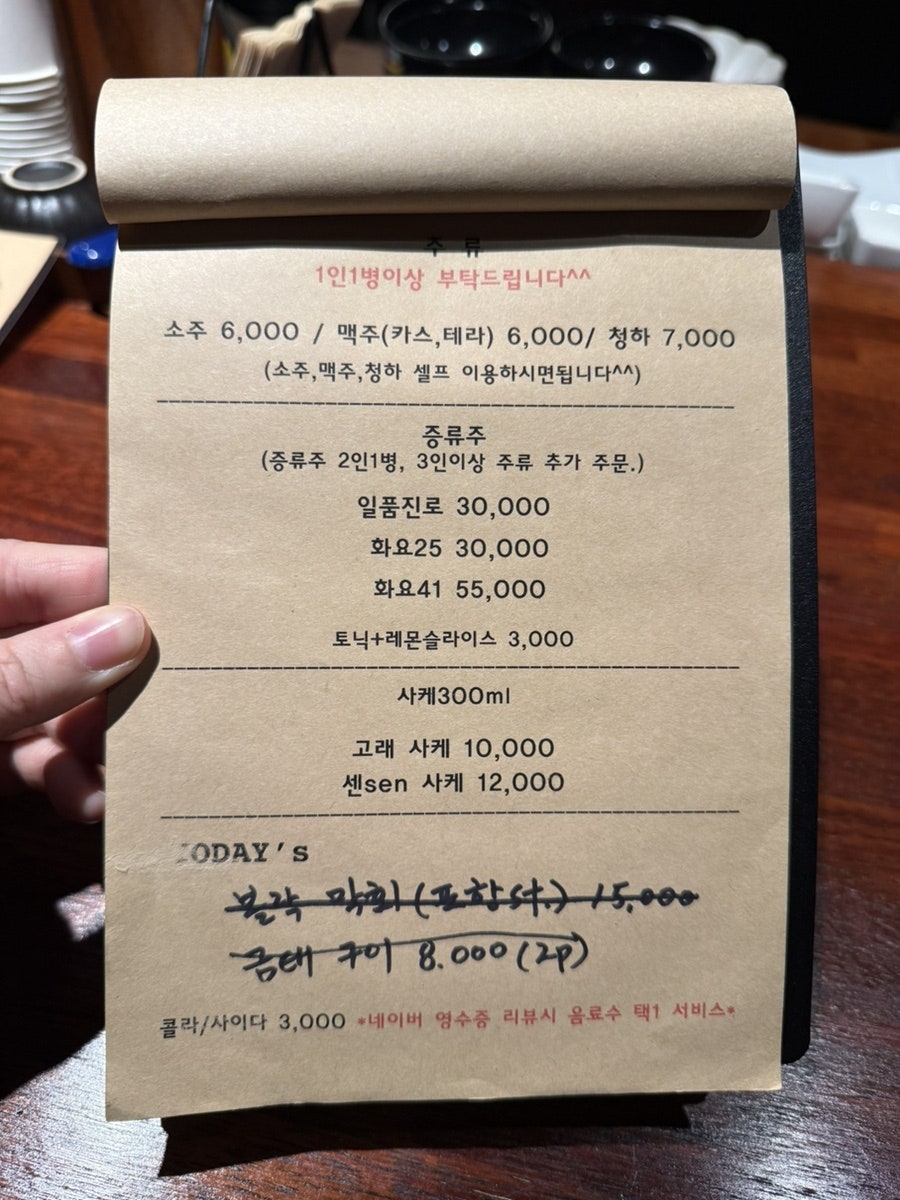 주 류
1인1병이상 부탁드립니다^^
소주 6,000 / 맥주(카스,테라) 6,000/ 청하 7,000
(소주,맥주,청하 셀프 이용하시면됩니다^^)
증류주
(증류주 2인1병, 3인이상 주류 추가 주문.)
일품진로 30,000
화요25 30,000
화요41 55,000
토닉+레몬슬라이스 3,000
사케300ml
고래 사케 10,000
센sen 사케 12,000
TODAY's
볼락 막회 (포항식.) 15,000
금태 구이 8.000 (2p)
콜라/사이다 3,000 *네이버 영수증 리뷰시 음료수 택1 서비스*